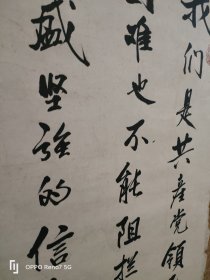 我们是共产党领
谁也不能阻拦
盛坚强的信
OPPO Reno7 5G